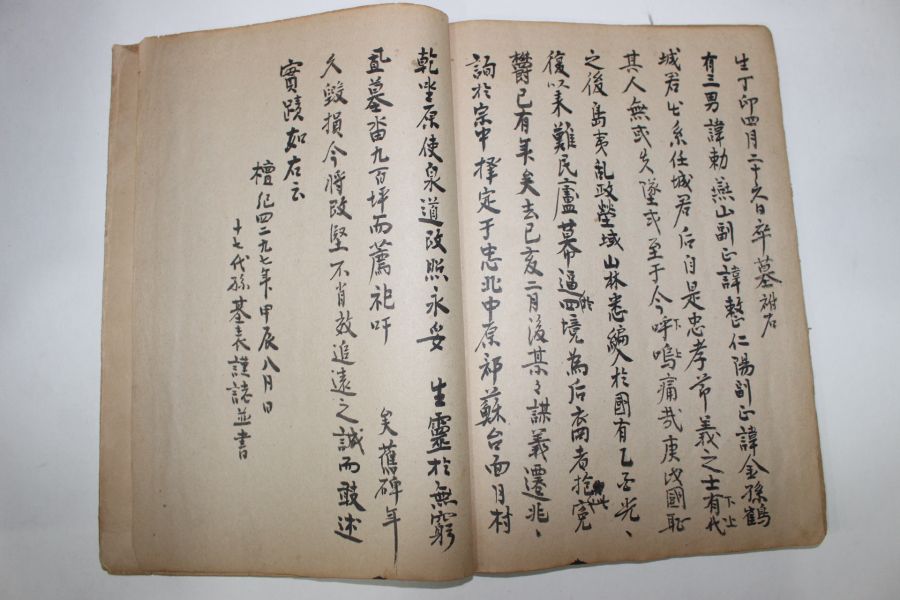 生丁卯四月二十六日卒墓祔右
有三男諱勅燕山副正諱整仁陽副正諱金孫鶴
城君出系任城君后自是忠孝節義之士有代下上
其人無或失墜或至于今呼嗚下上痛哉庚戌國恥
之後島夷亂政塋域山林悉編入於國有乙酉光、
復以來難民廬幕逼此四境為后裔者抱寃
欝已有年矣去己亥二月後某某謀義遷兆、
詢於宗中擇定于忠北中原郡蘇台面月村
乾坐原使泉道改照永妥 生靈於無窮
置墓畓九百坪而薦祀吁 矣舊碑年
久毀損今將改竪不肖效追遠之誠而敢述
實蹟如右云
檀紀四二九七年甲辰八月日
十七代孫基表謹誌並書